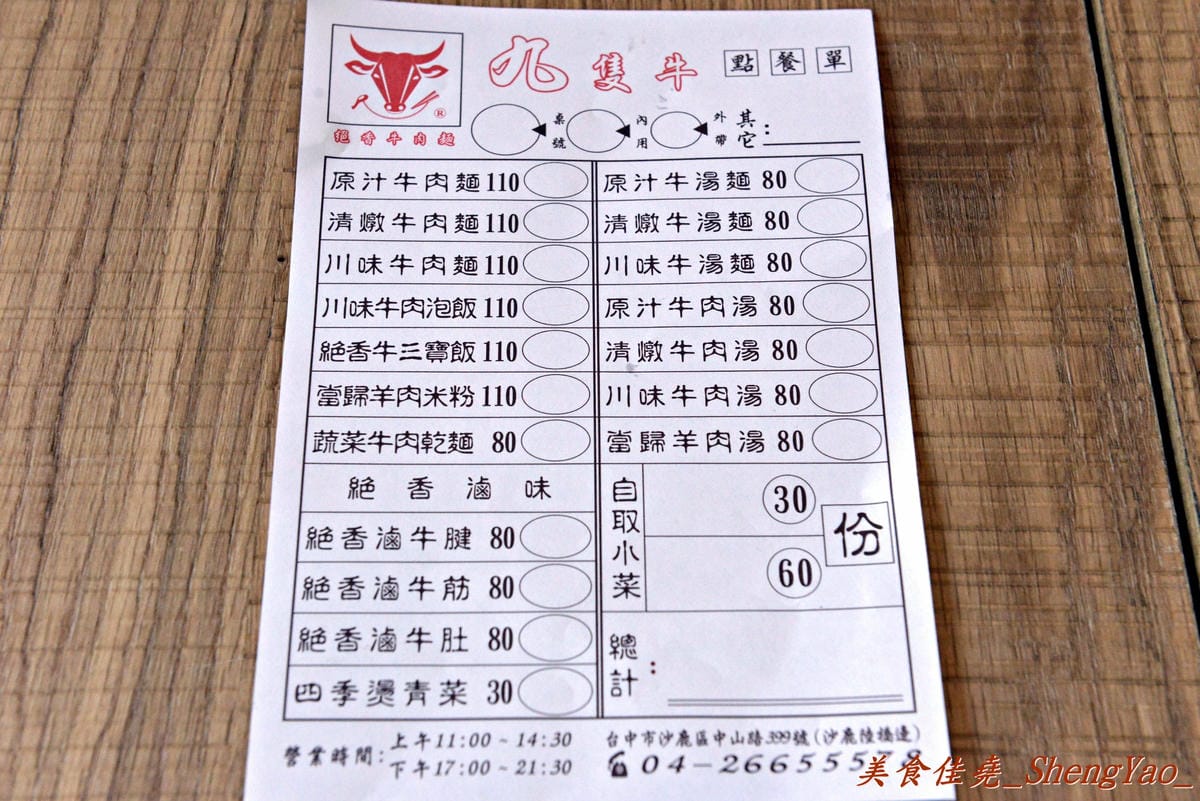 九隻牛 點餐單
絕香牛肉麵
桌號 內用 外帶 其它：
原汁牛肉麵 110 原汁牛湯麵 80
清燉牛肉麵 110 清燉牛湯麵 80
川味牛肉麵 110 川味牛湯麵 80
川味牛肉泡飯 110 原汁牛肉湯 80
絕香牛三寶飯 110 清燉牛肉湯 80
當歸羊肉米粉 110 川味牛肉湯 80
蔬菜牛肉乾麵 80 當歸羊肉湯 80
絕香滷味
絕香滷牛腱 80
絕香滷牛筋 80
絕香滷牛肚 80
四季燙青菜 30
自取小菜 30 60 份
總計：
營業時間：上午11:00~14:30
下午17:00~21:30
台中市沙鹿區中山路399號(沙鹿陸橋邊)
04-26655578
美食佳堯_ShengYao_